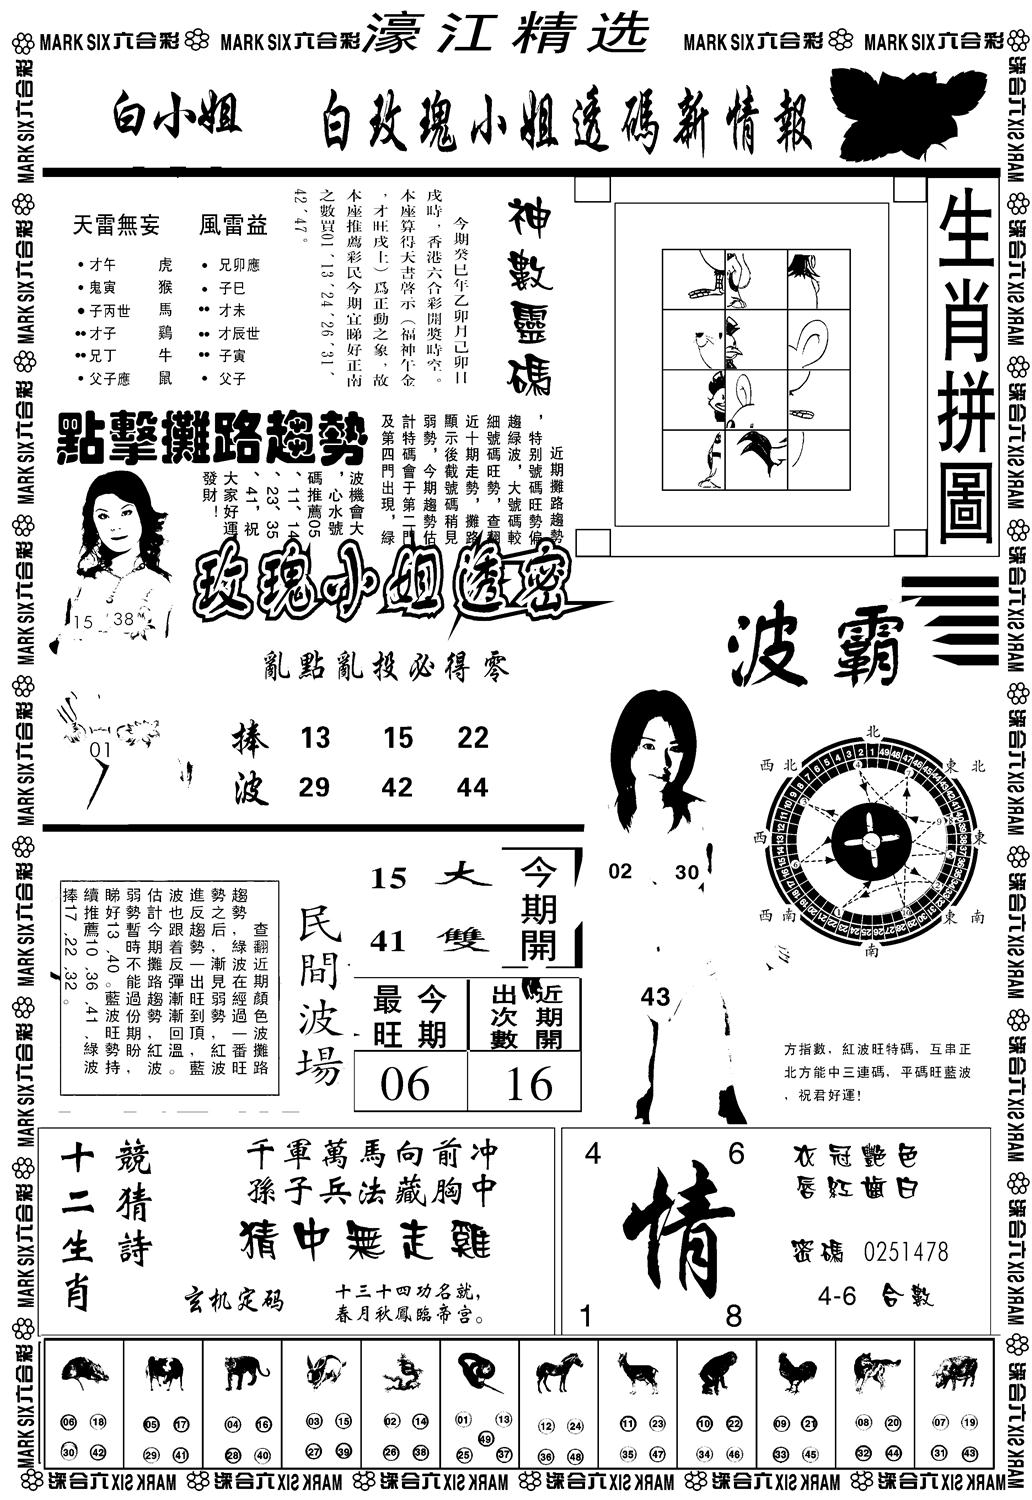 MARK SIX六合彩 MARK SIX六合彩 濠江精选 MARK SIX六合彩 MARK SIX六合彩
白小姐 白玫瑰小姐透碼新情報
天雷無妄 風雷益
•才午 虎 •兄卯應
•鬼寅 猴 •子巳
●子丙世 馬 ••才未
••才子 鷄 ••才辰世
••兄丁 牛 ••子寅
•父子應 鼠 •父子
神數靈碼
今期癸巳年乙卯月己卯日
戌時，香港六合彩開獎時空。
本座算得天書啓示（福神午金
，才旺戌土）爲正動之象，故
本座推薦彩民今期宜睇好正南
之數買01、13、24、26、31、
42、47。
生肖拼圖
點擊攤路趨勢
近期攤路趨勢
，特别號碼旺勢偏
趨绿波，大號碼較
細號碼旺勢，查翻
近十期走勢，攤路
顯示後截號碼稍見
弱勢，今期趨勢估
計特碼會于第二門
及第四門出現，緑
波機會大
，心水號
碼推薦05
、11、14
、23、35
、41，祝
大家好運
發財！
15 38
玫瑰小姐透密
亂點亂投必得零
01
捧 13 15 22
波 29 42 44
波霸
02 30
43
北
西北 東北
西 東
西南 東南
南
方指數，紅波旺特碼，互串正
北方能中三連碼，平碼旺藍波
，祝君好運！
查翻近期顔色波攤路
趨勢，綠波在經過一番旺
勢之后，漸見弱勢，紅波
進反趨勢一出旺到頂，藍
波也跟着反彈漸漸回溫。
估計今期攤路趨勢，紅波
弱勢暫時不能過份期盼，
睇好13、40。藍波旺勢持
續推薦10、36、41，綠波
捧17、22、32。
民間波場
15 大
41 雙
今期開
今期最旺
近期開出次數
06 16
十二生肖
競猜詩
千軍萬馬向前冲
孫子兵法藏胸中
猜中無走雞
玄机定码
十三十四功名就，
春月秋鳳臨帝宫。
4 6
情
1 8
衣冠艷色
唇紅齒白
密碼 0251478
4-6 合數
06 18 05 17 04 16 03 15 02 14 01 13 12 24 11 23 10 22 09 21 08 20 07 19
49
30 42 29 41 28 40 27 39 26 38 25 37 36 48 35 47 34 46 33 45 32 44 31 43
MARK SIX六合彩 MARK SIX六合彩 MARK SIX六合彩 MARK SIX六合彩 MARK SIX六合彩 MARK SIX六合彩